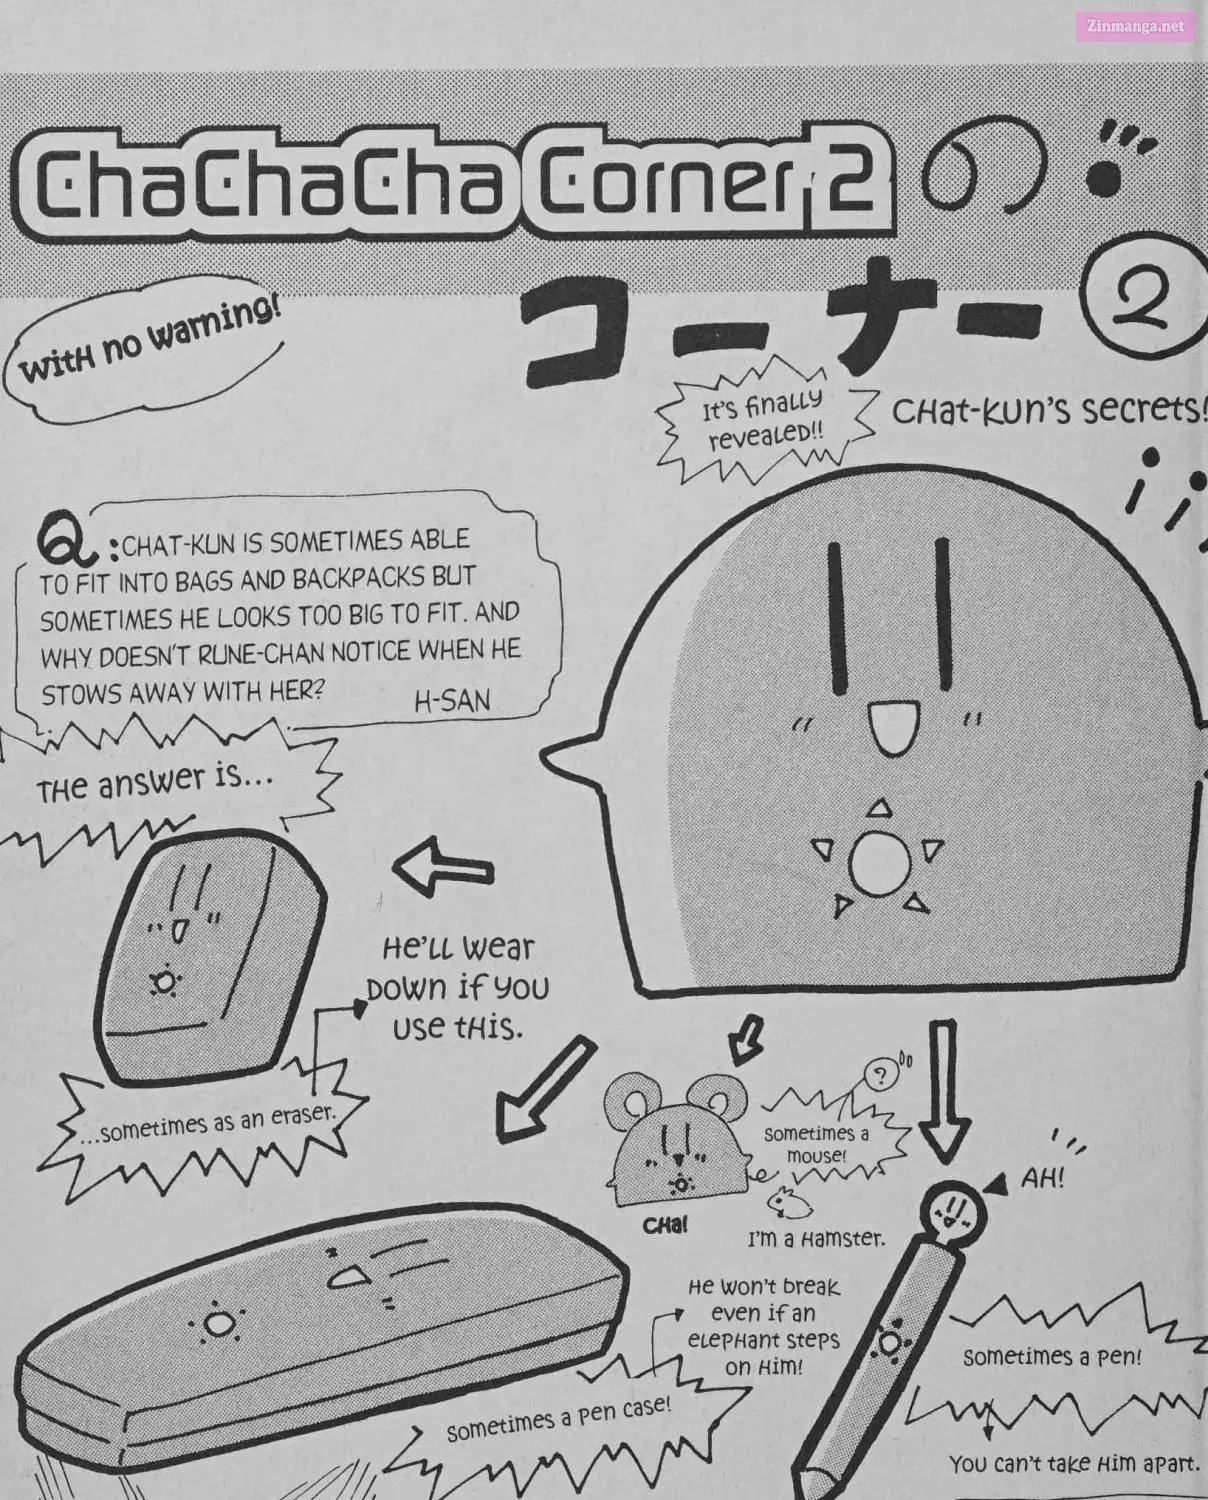 Zinmanga.net
ChaChaCha Corner, 2
の
コーナー
2
With no warning!
It's finally
revealed!!
Chat-kun's secrets!
Q:CHAT-KUN IS SOMETIMES ABLE
TO FIT INTO BAGS AND BACKPACKS BUT
SOMETIMES HE LOOKS TOO BIG TO FIT. AND
WHY DOESN'T RUNE-CHAN NOTICE WHEN HE
STOWS AWAY WITH HER?
H-SAN
The answer is...
He'll wear
down if you
use this.
...sometimes as an eraser.
?
Sometimes a
mouse!
Cha!
I'm a hamster.
Ah!
He won't break
even if an
elephant steps
on him!
Sometimes a pen!
Sometimes a pen case!
You can't take him apart.